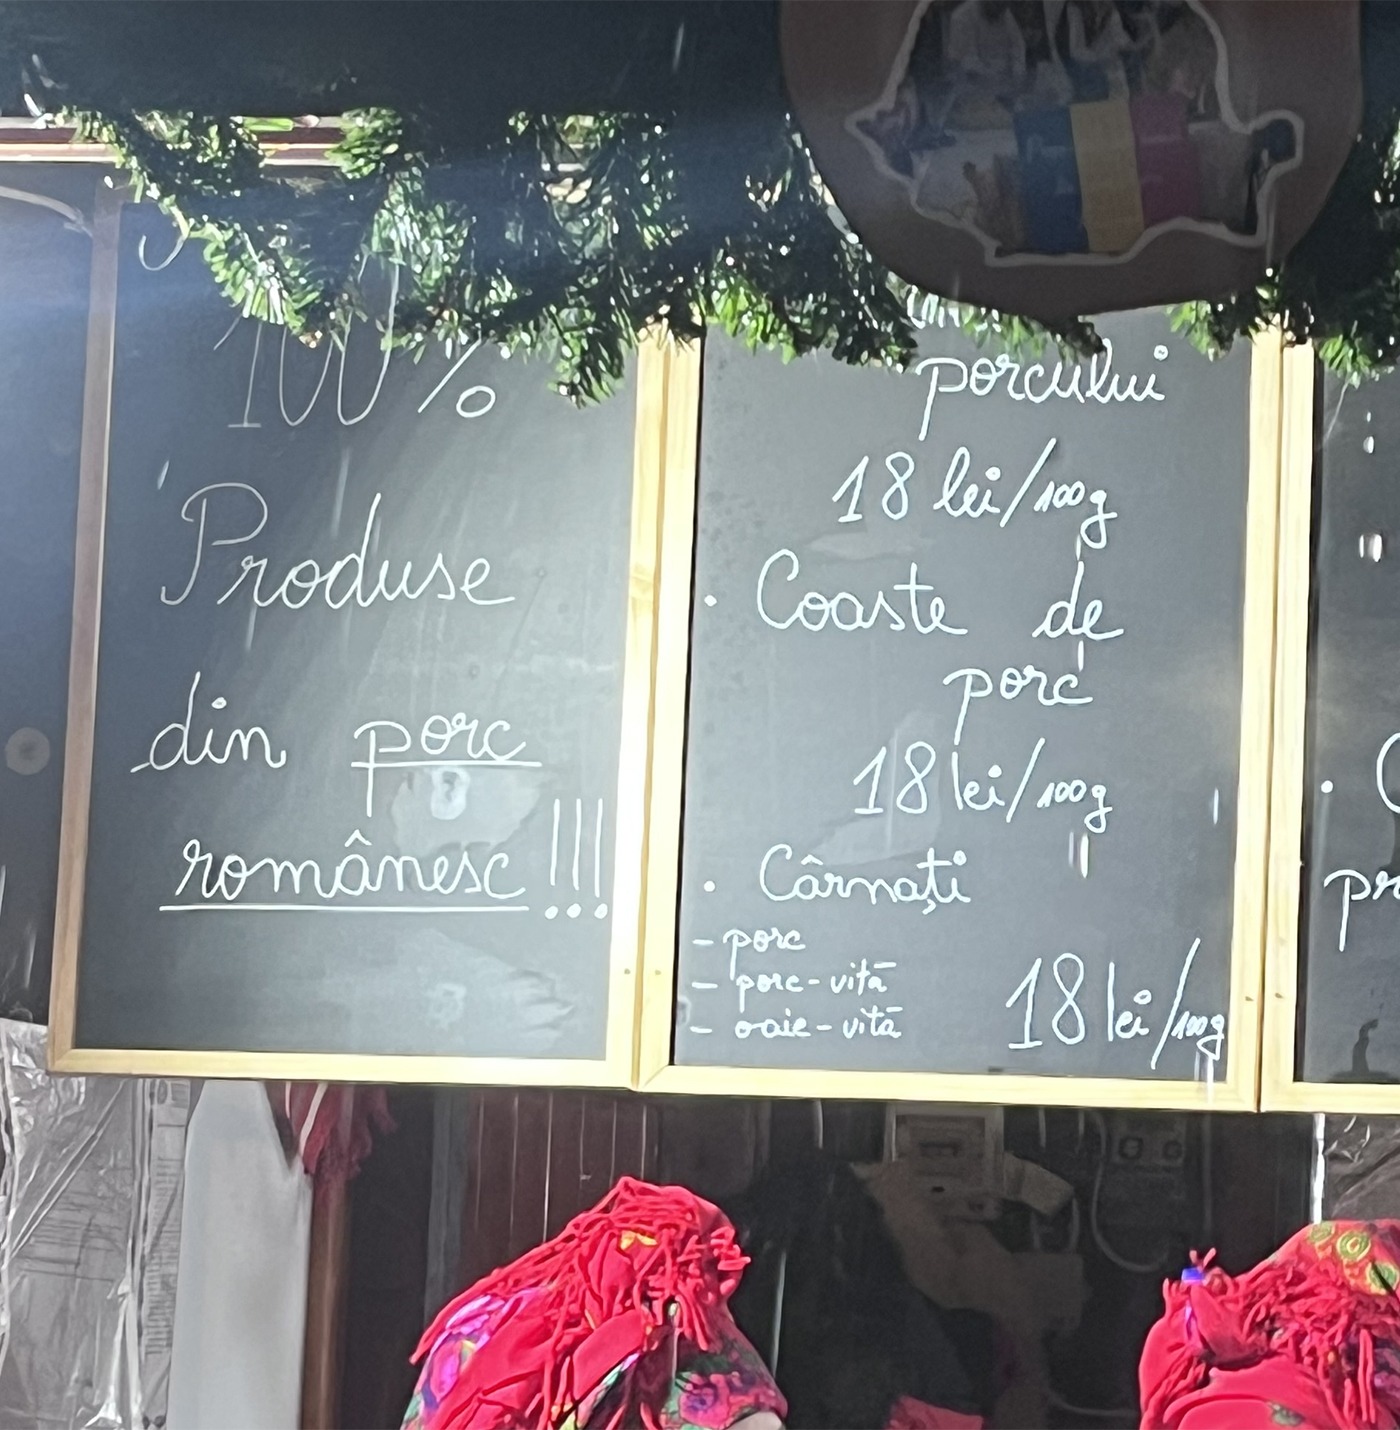 100%
Produse
din porc
românesc!!!
porcului
18 lei/100g
• Coaste de
porc
18 lei/100g
• Cârnați
- porc
- porc-vită
- oaie-vită 18 lei/100g